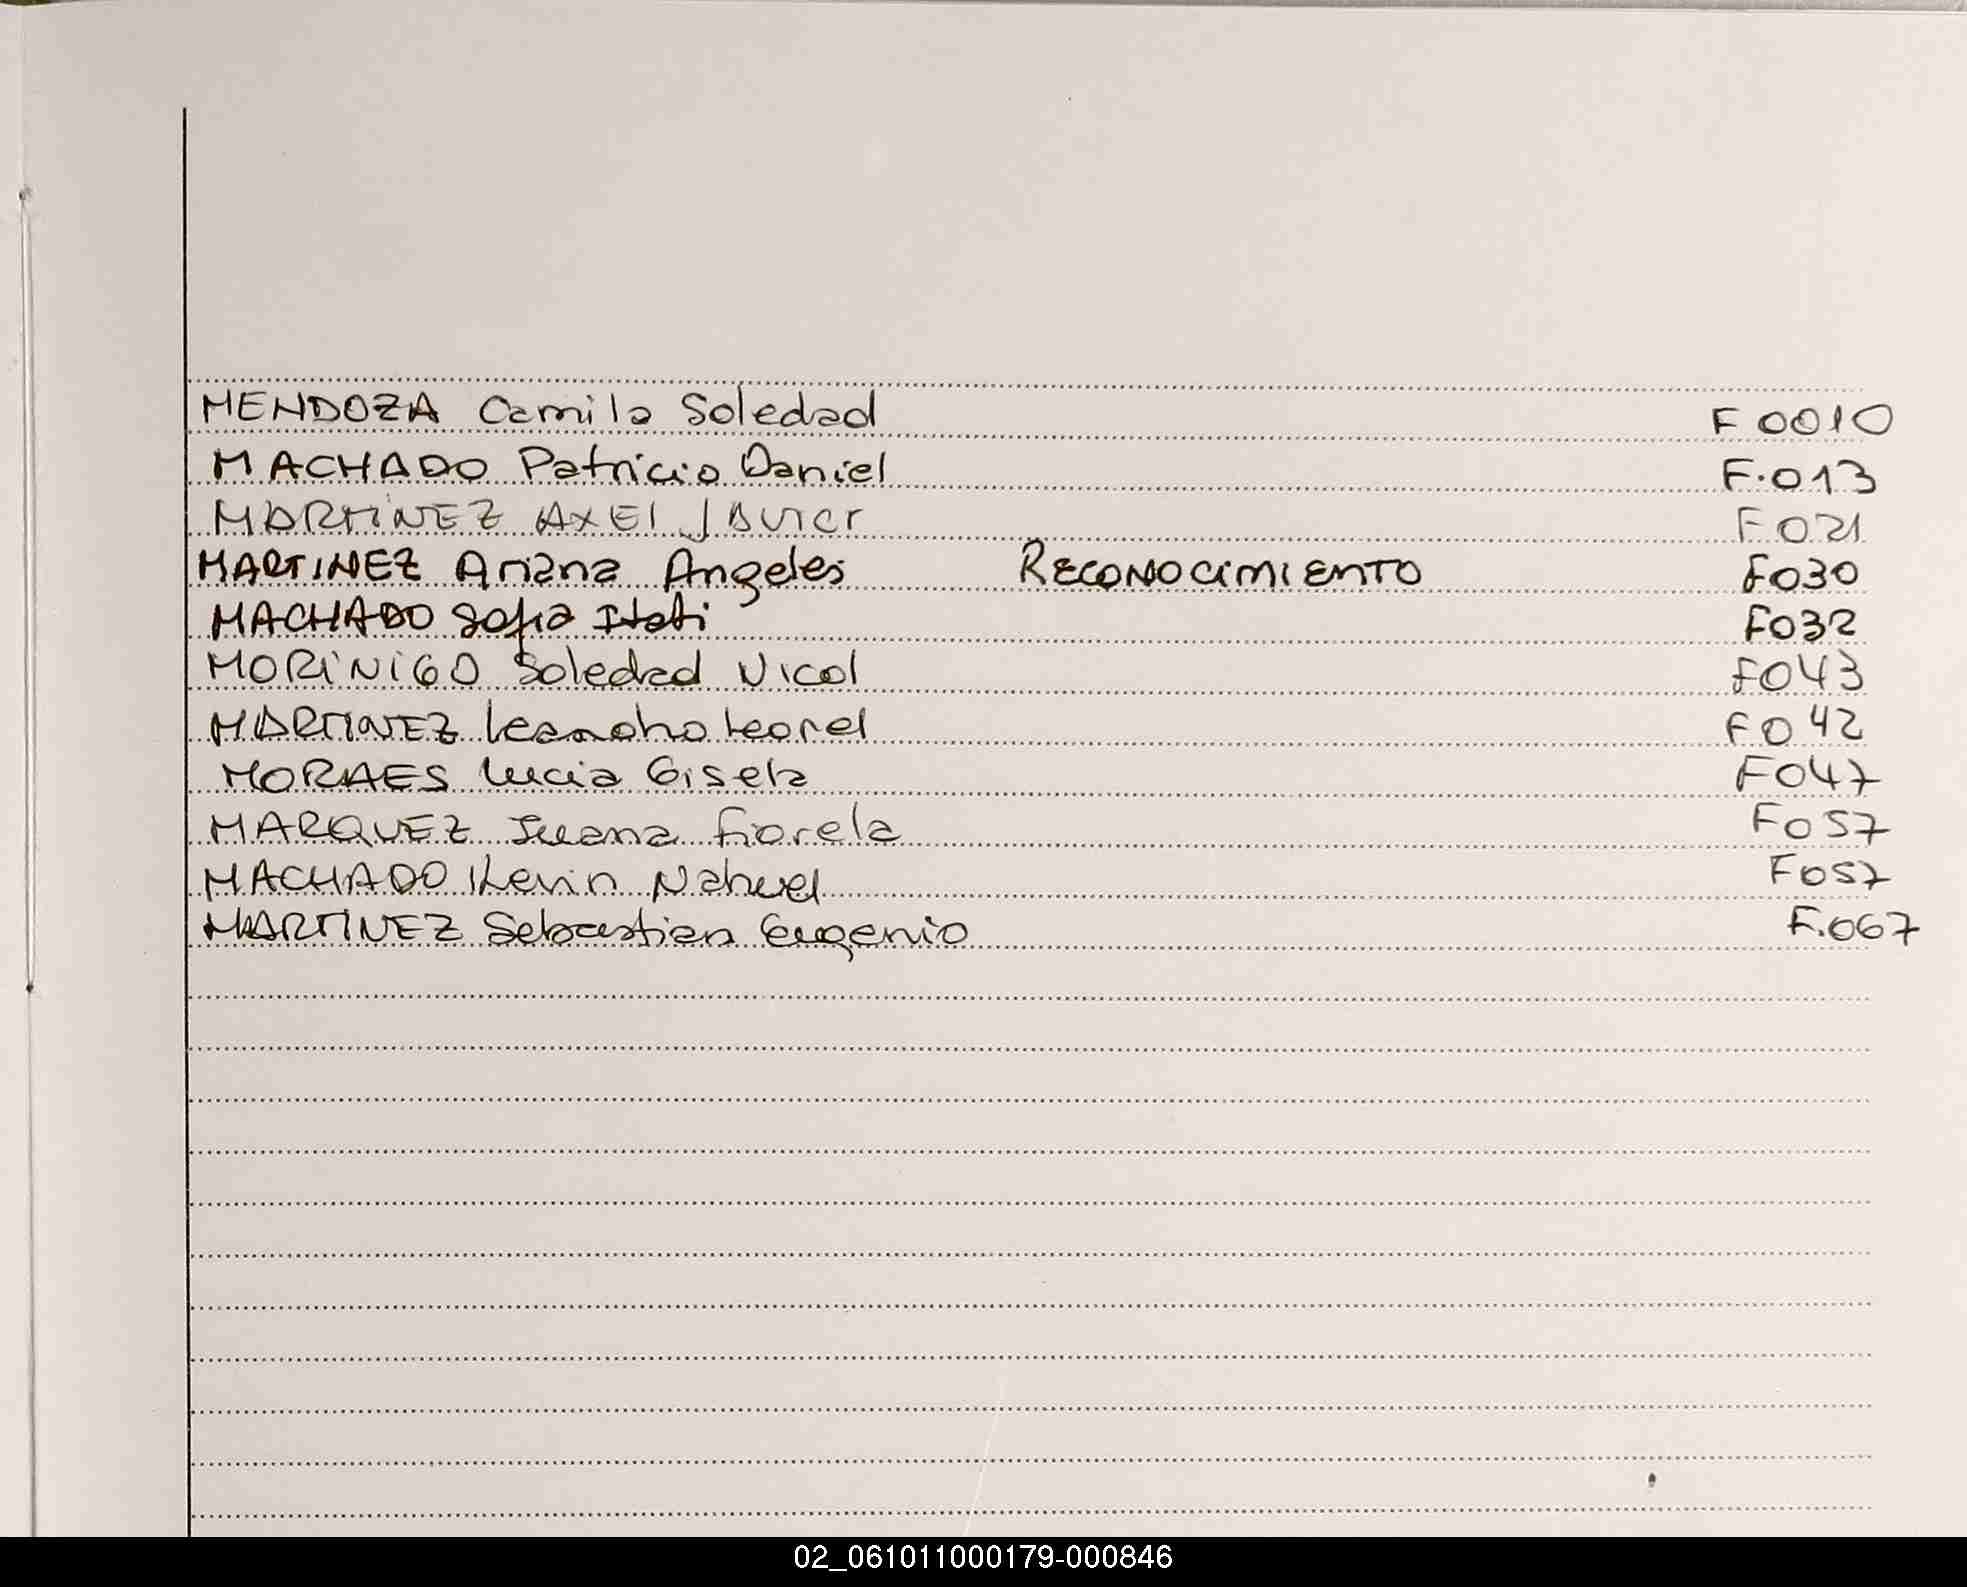 MENDOZA Camila Soledad F 0010
MACHADO Patricio Daniel F.013
MARTiNEZ AXEl JAvier F 021
MARTINEZ Ariana Angeles RECONOCIMIENTO F030
MACHADO Sofia Itati F032
MORiNiGO Soledad Nicol F043
MARTINEZ Leandro Leonel F042
MORAES Lucia Gisela F047
MARQUEZ Juana Fiorela F057
MACHADO Kevin Nahuel F057
MARTINEZ Sebastian Eugenio F.067
02_061011000179-000846